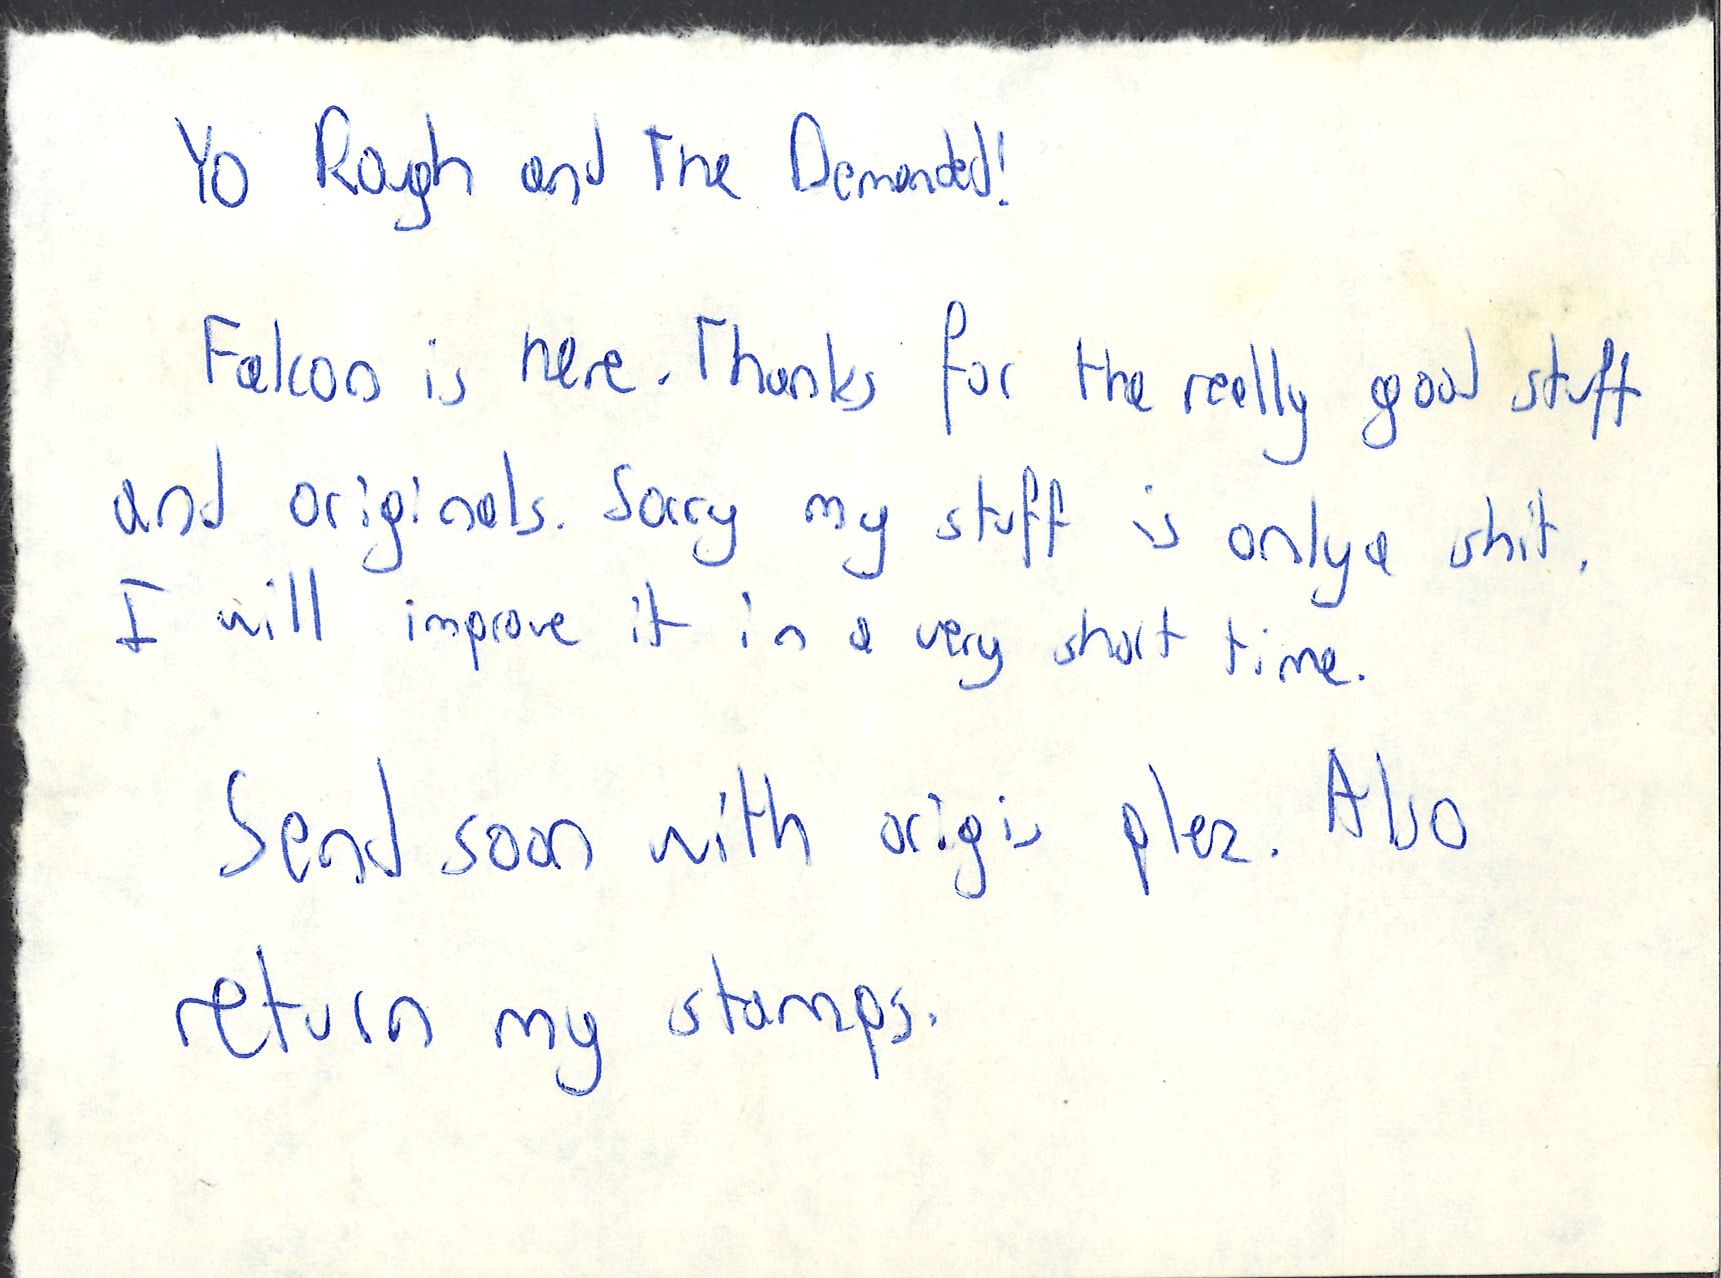 Yo Rough and The Demanded!
Falcon is here. Thanks for the really good stuff
and originals. Sorry my stuff is only a shit.
I will improve it in a very short time.
Send soon with origis plez. Also
return my stamps.